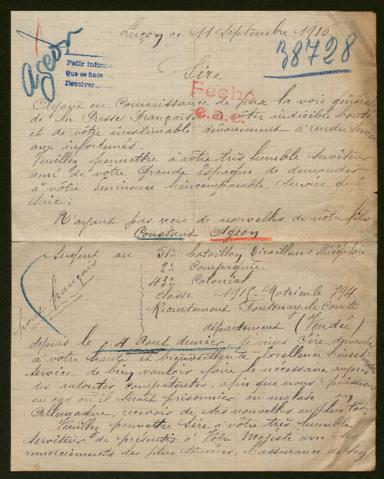 Luçon ce 11 Septembre 1916
38728
Ageon
Pedir inform
Que se hace
Devolver
Sire
Fecho
Ayant eu Connaissance de par la voie générale
de la Presse Française votre indicible bonté
et de votre inestimable dévouement à rendre
aux infortunés.
Veuillez permettre à votre très humble serviteur
ami de votre Grande Espagne de demander
à votre éminence incomparable, Service qui
N'ayant pas reçu de nouvelles de notre fils
Constant Ageon
Sergent au 51e bataillon Tirailleurs Sénégalais
2e Compagnie
43e Colonial
classe 1915 Matricule 794
Recrutement Fontenay le Comte
département (Vendée)
front français
depuis le 4 Août dernier je viens Sire demander
à votre haute et Excellence
service de bien vouloir faire le nécessaire auprès
des autorités compétentes, afin que nous puissions
en cas où il serait prisonnier ou malade
Allemagne, recevoir de ses nouvelles au plus tôt.
Veuillez permettre Sire à votre très humble
serviteur de présenter à Votre Majesté avec ses
remerciements des plus sincères, l'assurance de